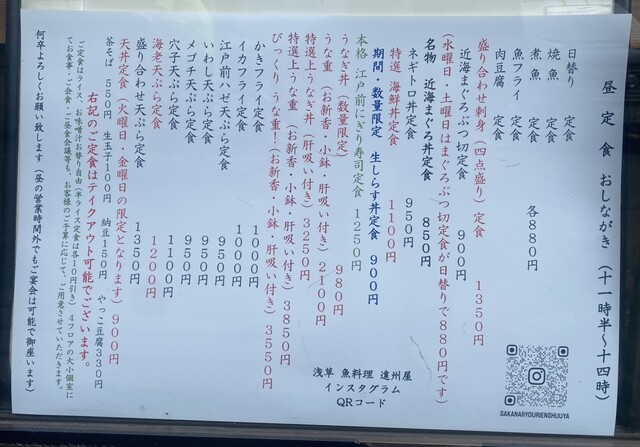 昼定食 おしながき （十一時半～十四時）
日替り 定食
焼魚 定食
煮魚 定食
魚フライ 定食
肉豆腐 定食
各８８０円
盛り合わせ刺身（四点盛り）定食 １３５０円
近海まぐろぶつ切定食 ９００円
（水曜日・土曜日はまぐろぶつ切定食が日替りで８８０円です）
名物 近海まぐろ丼定食 ８５０円
ネギトロ丼定食 ９５０円
特選 海鮮丼定食 １１００円
期間・数量限定 生しらす丼定食 ９００円
本格 江戸前にぎり寿司定食 １２５０円
うなぎ丼（数量限定） ９８０円
うな重（お新香・小鉢・肝吸い付き）２１００円
特選上うなぎ丼（肝吸い付き）３２５０円
特選上うな重（お新香・小鉢・肝吸い付き）３８５０円
びっくりうな重！（お新香・小鉢・肝吸い付き）３５５０円
かきフライ定食 １０００円
イカフライ定食 １０００円
江戸前ハゼ天ぷら定食 ９５０円
いわし天ぷら定食 ９５０円
メゴチ天ぷら定食 ９５０円
穴子天ぷら定食 １１００円
海老天ぷら定食 １２００円
盛り合わせ天ぷら定食 １３５０円
天丼定食（火曜日・金曜日の限定となります）９００円
茶そば ５５０円 生玉子１００円 納豆１５０円 やっこ豆腐３３０円
右記のご定食はテイクアウト可能でございます。
ご定食はライス、お味噌汁お替り自由（半ライス定食は各１０円引き）４フロアの大小個室に
てお食事・ご会食・ご昼食会議等も、お客様のご予算に応じて、ご用意させていただきます。
何卒よろしくお願い致します（昼の営業時間外でもご宴会は可能で御座います）
浅草 魚料理 遠州屋
インスタグラム
QRコード
SAKANARYOURIENSHUUYA